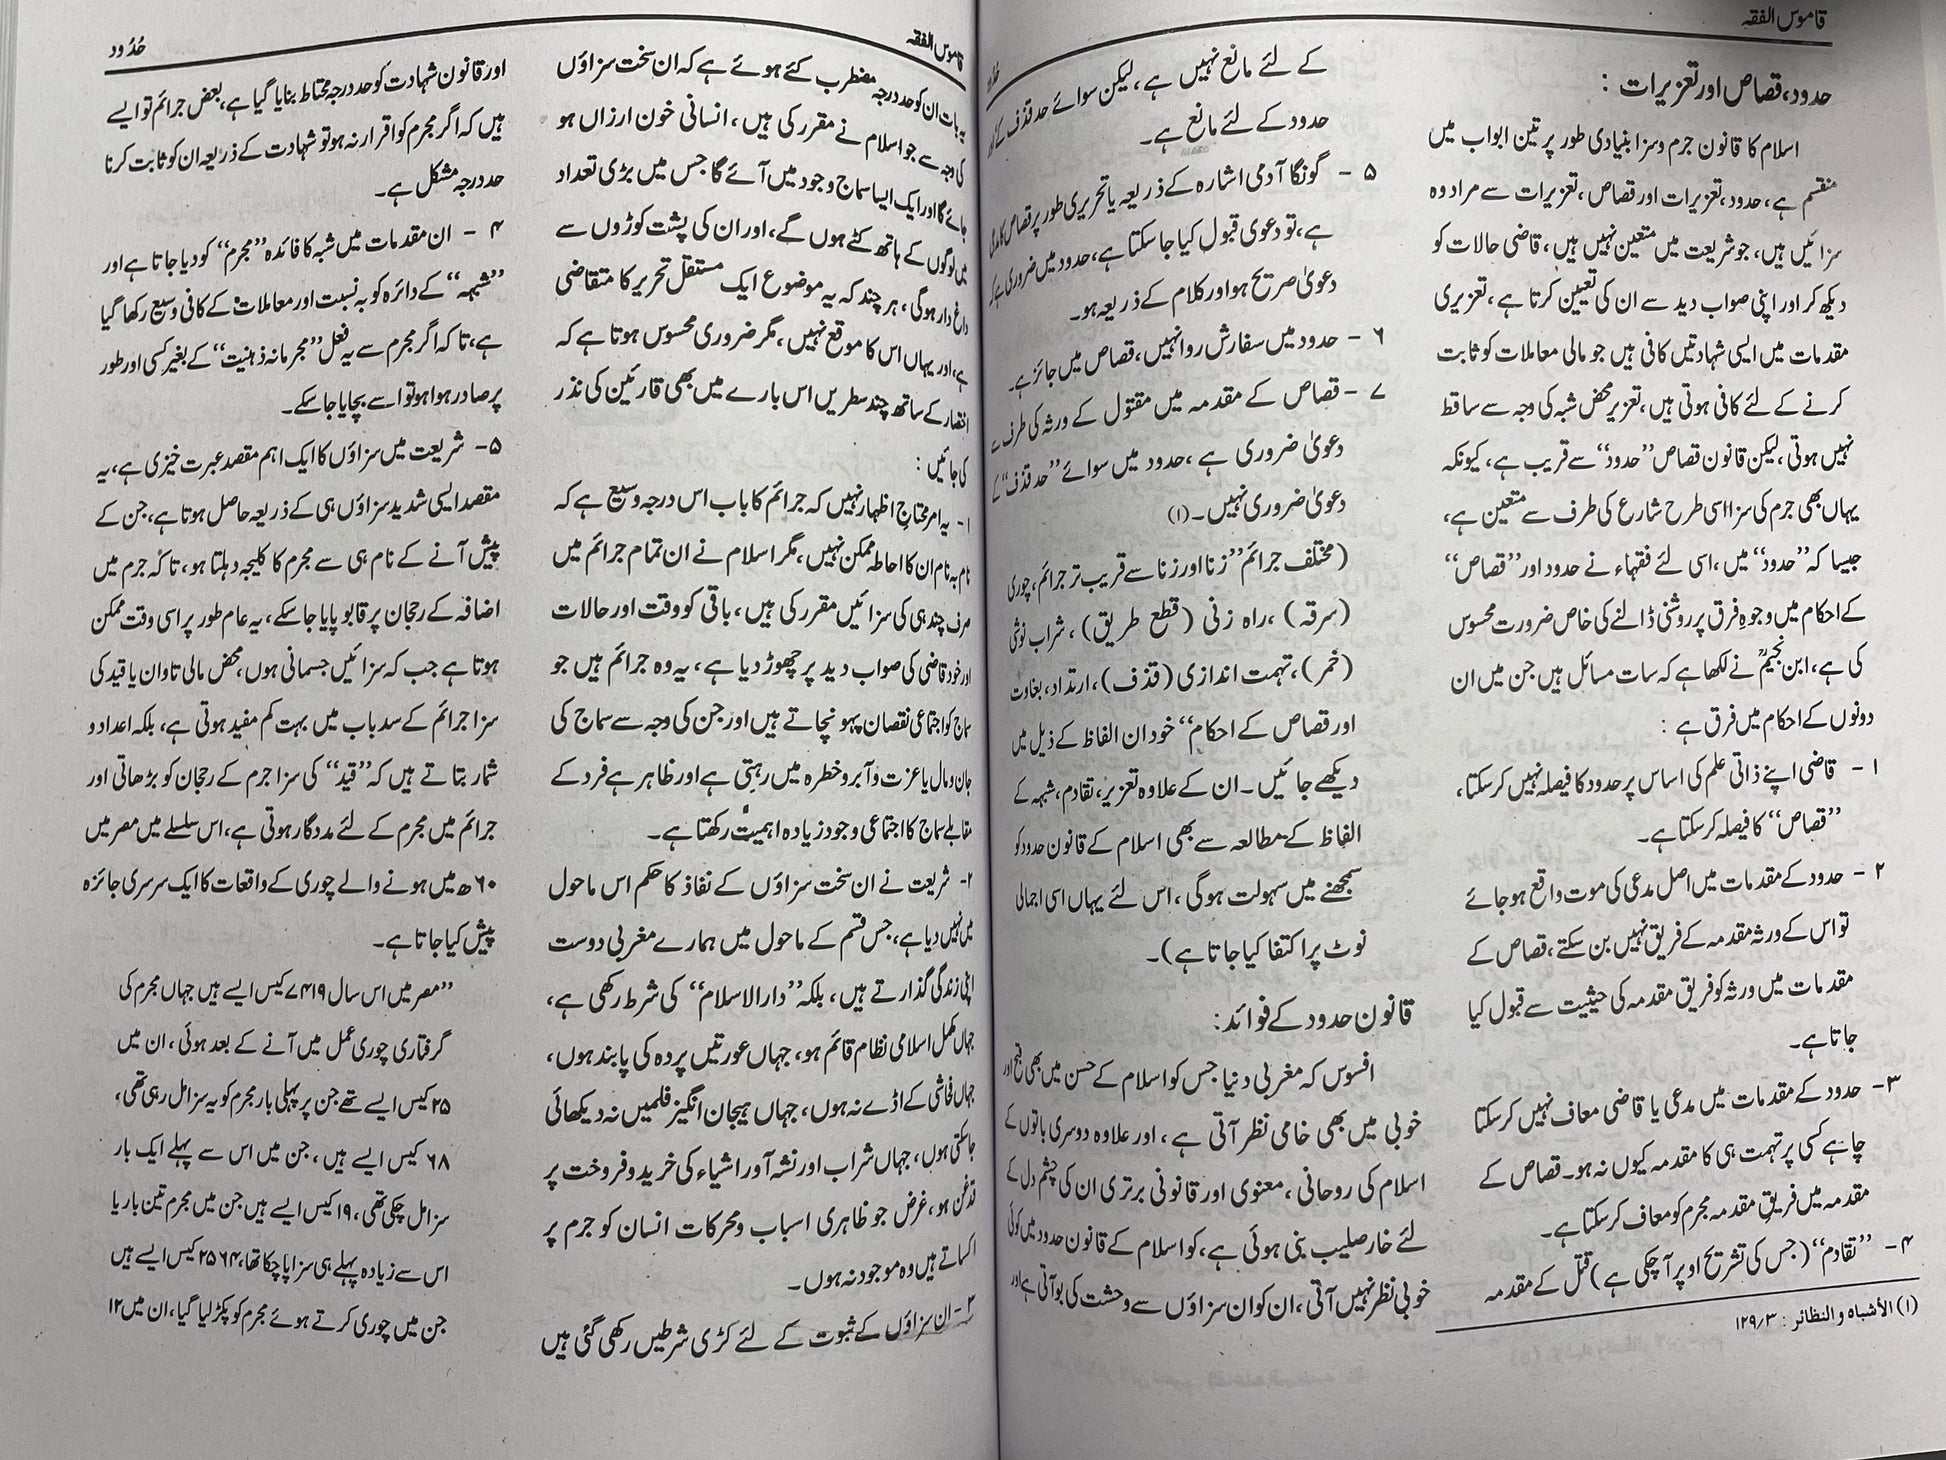 قاموس الفقہ
حدود، قصاص اور تعزیرات :
اسلام کا قانون جرم وسزا بنیادی طور پر تین ابواب میں
منقسم ہے، حدود، تعزیرات اور قصاص، تعزیرات سے مراد وہ
سزائیں ہیں، جو شریعت میں متعین نہیں ہیں، قاضی حالات کو
دیکھ کر اور اپنی صواب دید سے ان کی تعیین کرتا ہے، تعزیری
مقدمات میں ایسی شہادتیں کافی ہیں جو مالی معاملات کو ثابت
کرنے کے لئے کافی ہوتی ہیں، تعزیر محض شبہ کی وجہ سے ساقط
نہیں ہوتی، لیکن قانون قصاص ”حدود“ سے قریب ہے، کیونکہ
یہاں بھی جرم کی سزا اسی طرح شارع کی طرف سے متعین ہے،
جیسا کہ ”حدود“ میں، اسی لئے فقہاء نے حدود اور ”قصاص“
کے احکام میں وجوہِ فرق پر روشنی ڈالنے کی خاص ضرورت محسوس
کی ہے، ابن نجیمؒ نے لکھا ہے کہ سات مسائل ہیں جن میں ان
دونوں کے احکام میں فرق ہے :
۱ - قاضی اپنے ذاتی علم کی اساس پر حدود کا فیصلہ نہیں کر سکتا،
”قصاص“ کا فیصلہ کر سکتا ہے۔
۲ - حدود کے مقدمات میں اصل مدعی کی موت واقع ہو جائے
تو اس کے ورثہ مقدمہ کے فریق نہیں بن سکتے، قصاص کے
مقدمات میں ورثہ کو فریق مقدمہ کی حیثیت سے قبول کیا
جاتا ہے۔
۳ - حدود کے مقدمات میں مدعی یا قاضی معاف نہیں کر سکتا
چاہے کسی پر تہمت ہی کا مقدمہ کیوں نہ ہو۔ قصاص کے
مقدمہ میں فریقِ مقدمہ مجرم کو معاف کر سکتا ہے۔
۴ - ”تقادم“ (جس کی تشریح اوپر آ چکی ہے) قتل کے مقدمہ
(۱) الأشباہ والنظائر : ۱۲۹/۳
کے لئے مانع نہیں ہے، لیکن سوائے حد قذف کے
حدود کے لئے مانع ہے۔
۵ - گونگا آدمی اشارہ کے ذریعہ یا تحریری طور پر قصاص کا
ہے، تو دعویٰ قبول کیا جا سکتا ہے، حدود میں ضروری ہے کہ
دعویٰ صریح ہو اور کلام کے ذریعہ ہو۔
۶ - حدود میں سفارش روا نہیں، قصاص میں جائز ہے۔
۷ - قصاص کے مقدمہ میں مقتول کے ورثہ کی طرف سے
دعویٰ ضروری ہے، حدود میں سوائے ”حد قذف“ کے
دعویٰ ضروری نہیں۔ (۱)
(مختلف جرائم ”زنا اور زنا سے قریب تر جرائم، چوری
(سرقہ)، راہ زنی (قطع طریق)، شراب نوشی
(خمر)، تہمت اندازی (قذف)، ارتداد، بغاوت
اور قصاص کے احکام“ خود ان الفاظ کے ذیل میں
دیکھے جائیں۔ ان کے علاوہ تعزیر، تقادم، شبہ کے
الفاظ کے مطالعہ سے بھی اسلام کے قانون حدود کو
سمجھنے میں سہولت ہوگی، اس لئے یہاں اسی اجمالی
نوٹ پر اکتفا کیا جاتا ہے)۔
قانون حدود کے فوائد :
افسوس کہ مغربی دنیا جس کو اسلام کے حسن میں بھی قبح اور
خوبی میں بھی خامی نظر آتی ہے، اور علاوہ دوسری باتوں کے
اسلام کی روحانی، معنوی اور قانونی برتری ان کی چشم دل کے
لئے خار صلیب بنی ہوئی ہے، کو اسلام کے قانون حدود میں کوئی
خوبی نظر نہیں آتی، ان کو ان سزاؤں سے وحشت کی بو آتی ہے اور
قاموس الفقہ
حُدُود
یہ بات ان کو حد درجہ مضطرب کئے ہوئے ہے کہ ان سخت سزاؤں
کی وجہ سے جو اسلام نے مقرر کی ہیں، انسانی خون ارزاں ہو
جائے گا اور ایک ایسا سماج وجود میں آئے گا جس میں بڑی تعداد
میں لوگوں کے ہاتھ کٹے ہوں گے، اور ان کی پشت کوڑوں سے
داغ دار ہوگی، ہر چند کہ یہ موضوع ایک مستقل تحریر کا متقاضی
ہے، اور یہاں اس کا موقع نہیں، مگر ضروری محسوس ہوتا ہے کہ
اختصار کے ساتھ چند سطریں اس بارے میں بھی قارئین کی نذر
کی جائیں :
۱ - یہ امر محتاج اظہار نہیں کہ جرائم کا باب اس درجہ وسیع ہے کہ
نام بہ نام ان کا احاطہ ممکن نہیں، مگر اسلام نے ان تمام جرائم میں
صرف چند ہی کی سزائیں مقرر کی ہیں، باقی کو وقت اور حالات
اور خود قاضی کی صواب دید پر چھوڑ دیا ہے، یہ وہ جرائم ہیں جو
سماج کو اجتماعی نقصان پہونچاتے ہیں اور جن کی وجہ سے سماج کی
جان ومال یا عزت وآبرو خطرہ میں رہتی ہے اور ظاہر ہے فرد کے
مقابلے سماج کا اجتماعی وجود زیادہ اہمیت رکھتا ہے۔
۲ - شریعت نے ان سخت سزاؤں کے نفاذ کا حکم اس ماحول
میں نہیں دیا ہے، جس قسم کے ماحول میں ہمارے مغربی دوست
اپنی زندگی گذارتے ہیں، بلکہ ”دار الاسلام“ کی شرط رکھی ہے،
جہاں مکمل اسلامی نظام قائم ہو، جہاں عورتیں پردہ کی پابند ہوں،
جہاں فحاشی کے اڈے نہ ہوں، جہاں ہیجان انگیز فلمیں نہ دیکھائی
جا سکتی ہوں، جہاں شراب اور نشہ آور اشیاء کی خرید وفروخت پر
قدغن ہو، غرض جو ظاہری اسباب ومحرکات انسان کو جرم پر
اکساتے ہیں وہ موجود نہ ہوں۔
۳ - ان سزاؤں کے ثبوت کے لئے کڑی شرطیں رکھی گئی ہیں
اور قانون شہادت کو حد درجہ محتاط بنایا گیا ہے، بعض جرائم تو ایسے
ہیں کہ اگر مجرم کو اقرار نہ ہو تو شہادت کے ذریعہ ان کو ثابت کرنا
حد درجہ مشکل ہے۔
۴ - ان مقدمات میں شبہ کا فائدہ ”مجرم“ کو دیا جاتا ہے اور
”شبہہ“ کے دائرہ کو بہ نسبت اور معاملات کے کافی وسیع رکھا گیا
ہے، تاکہ اگر مجرم سے یہ فعل ”مجرمانہ ذہنیت“ کے بغیر کسی اور طور
پر صادر ہوا ہو تو اسے بچایا جا سکے۔
۵ - شریعت میں سزاؤں کا ایک اہم مقصد عبرت خیزی ہے، یہ
مقصد ایسی شدید سزاؤں ہی کے ذریعہ حاصل ہوتا ہے، جن کے
پیش آنے کے نام ہی سے مجرم کا کلیجہ دہلتا ہو، تاکہ جرم میں
اضافہ کے رجحان پر قابو پایا جا سکے، یہ عام طور پر اسی وقت ممکن
ہوتا ہے جب کہ سزائیں جسمانی ہوں، محض مالی تاوان یا قید کی
سزا جرائم کے سد باب میں بہت کم مفید ہوتی ہے، بلکہ اعداد و
شمار بتاتے ہیں کہ ”قید“ کی سزا جرم کے رجحان کو بڑھاتی اور
جرائم میں مجرم کے لئے مددگار ہوتی ہے، اس سلسلے میں مصر میں
۶۰ھ میں ہونے والے چوری کے واقعات کا ایک سرسری جائزہ
پیش کیا جاتا ہے۔
”مصر میں اس سال ۷۴۱۹ کیس ایسے ہیں جہاں مجرم کی
گرفتاری چوری عمل میں آنے کے بعد ہوئی، ان میں
۲۵ کیس ایسے تھے جن پر پہلی بار مجرم کو یہ سزا مل رہی تھی،
۶۸ کیس ایسے ہیں، جن میں اس سے پہلے ایک بار
سزا مل چکی تھی، ۱۹ کیس ایسے ہیں جن میں مجرم تین بار یا
اس سے زیادہ پہلے ہی سزا پا چکا تھا، ۲۵۶۴ کیس ایسے ہیں
جن میں چوری کرتے ہوئے مجرم کو پکڑ لیا گیا، ان میں ۱۲